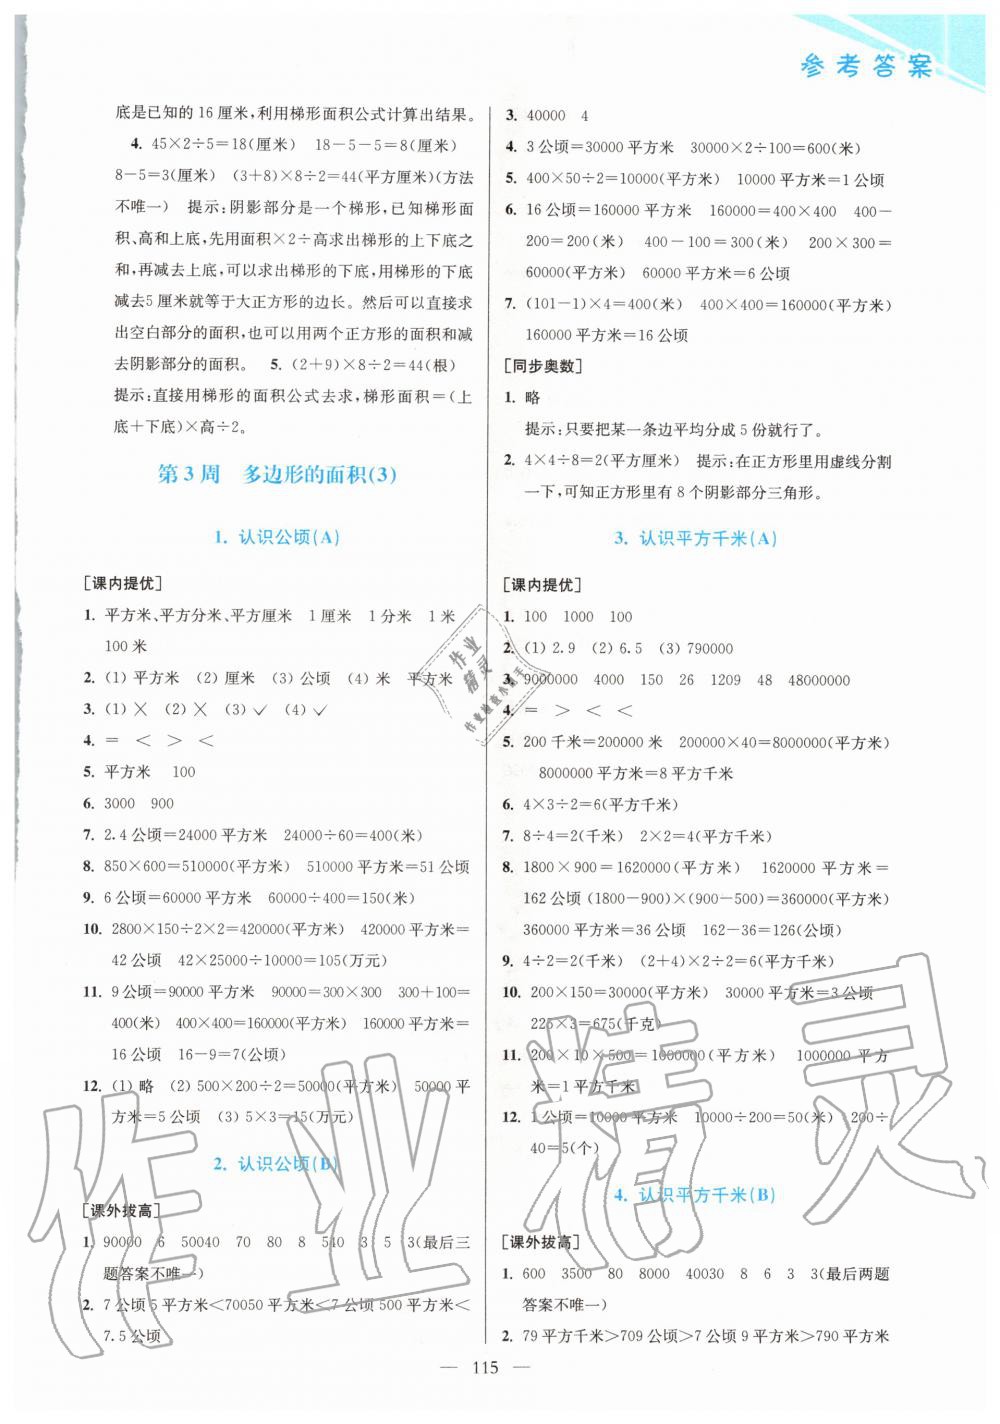 参考答案
底是已知的 16 厘米,利用梯形面积公式计算出结果。
4. 45×2÷5=18(厘米) 18-5-5=8(厘米)
8-5=3(厘米) (3+8)×8÷2=44(平方厘米)(方法
不唯一) 提示:阴影部分是一个梯形,已知梯形面
积、高和上底,先用面积×2÷高求出梯形的上下底之
和,再减去上底,可以求出梯形的下底,用梯形的下底
减去5 厘米就等于大正方形的边长。然后可以直接求
出空白部分的面积,也可以用两个正方形的面积和减
去阴影部分的面积。 5. (2+9)×8÷2=44(根)
提示:直接用梯形的面积公式去求,梯形面积=(上
底+下底)×高÷2。
第 3 周 多边形的面积(3)
1. 认识公顷(A)
[课内提优]
1. 平方米、平方分米、平方厘米 1 厘米 1 分米 1 米
100 米
2. (1) 平方米 (2) 厘米 (3) 公顷 (4) 米 平方米
3. (1) × (2) × (3) ✓ (4) ✓
4. = < > <
5. 平方米 100
6. 3000 900
7. 2.4 公顷=24000 平方米 24000÷60=400(米)
8. 850×600=510000(平方米) 510000 平方米=51 公顷
9. 6 公顷=60000 平方米 60000÷400=150(米)
10. 2800×150÷2×2=420000(平方米) 420000 平方米=
42 公顷 42×25000÷10000=105(万元)
11. 9 公顷=90000 平方米 90000=300×300 300+100=
400(米) 400×400=160000(平方米) 160000 平方米=
16 公顷 16-9=7(公顷)
12. (1) 略 (2) 500×200÷2=50000(平方米) 50000 平
方米=5 公顷 (3) 5×3=15(万元)
2. 认识公顷(B)
[课外拔高]
1. 90000 6 50040 70 80 8 540 3 5 3(最后三
题答案不唯一)
2. 7 公顷 5 平方米<70050 平方米<7 公顷 500 平方米<
7.5 公顷
3. 40000 4
4. 3 公顷=30000 平方米 30000×2÷100=600(米)
5. 400×50÷2=10000(平方米) 10000 平方米=1 公顷
6. 16 公顷=160000 平方米 160000=400×400 400-
200=200(米) 400-100=300(米) 200×300=
60000(平方米) 60000 平方米=6 公顷
7. (101-1)×4=400(米) 400×400=160000(平方米)
160000 平方米=16 公顷
[同步奥数]
1. 略
提示:只要把某一条边平均分成 5 份就行了。
2. 4×4÷8=2(平方米) 提示:在正方形里用虚线分割
一下,可知正方形里有 8 个阴影部分三角形。
3. 认识平方千米(A)
[课内提优]
1. 100 1000 100
2. (1) 2.9 (2) 6.5 (3) 790000
3. 9000000 4000 150 26 1209 48 48000000
4. = > < <
5. 200 千米=200000 米 200000×40=8000000(平方米)
8000000 平方米=8 平方千米
6. 4×3÷2=6(平方千米)
7. 8÷4=2(千米) 2×2=4(平方千米)
8. 1800×900=1620000(平方米) 1620000 平方米=
162 公顷 (1800-900)×(900-500)=360000(平方米)
360000 平方米=36 公顷 162-36=126(公顷)
9. 4÷2=2(千米) (2+4)×2÷2=6(平方千米)
10. 200×150=30000(平方米) 30000 平方米=3 公顷
225×3=675(千克)
11. 200×10×500=1000000(平方米) 1000000 平方
米=1 平方千米
12. 1 公顷=10000 平方米 10000÷200=50(米) 200÷
40=5(个)
4. 认识平方千米(B)
[课外拔高]
1. 600 3500 80 8000 40030 8 6 3 3(最后两题
答案不唯一)
2. 79 平方千米>709 公顷>7 公顷 9 平方米>790 平方米
— 115 —
作业精灵
作业
精灵